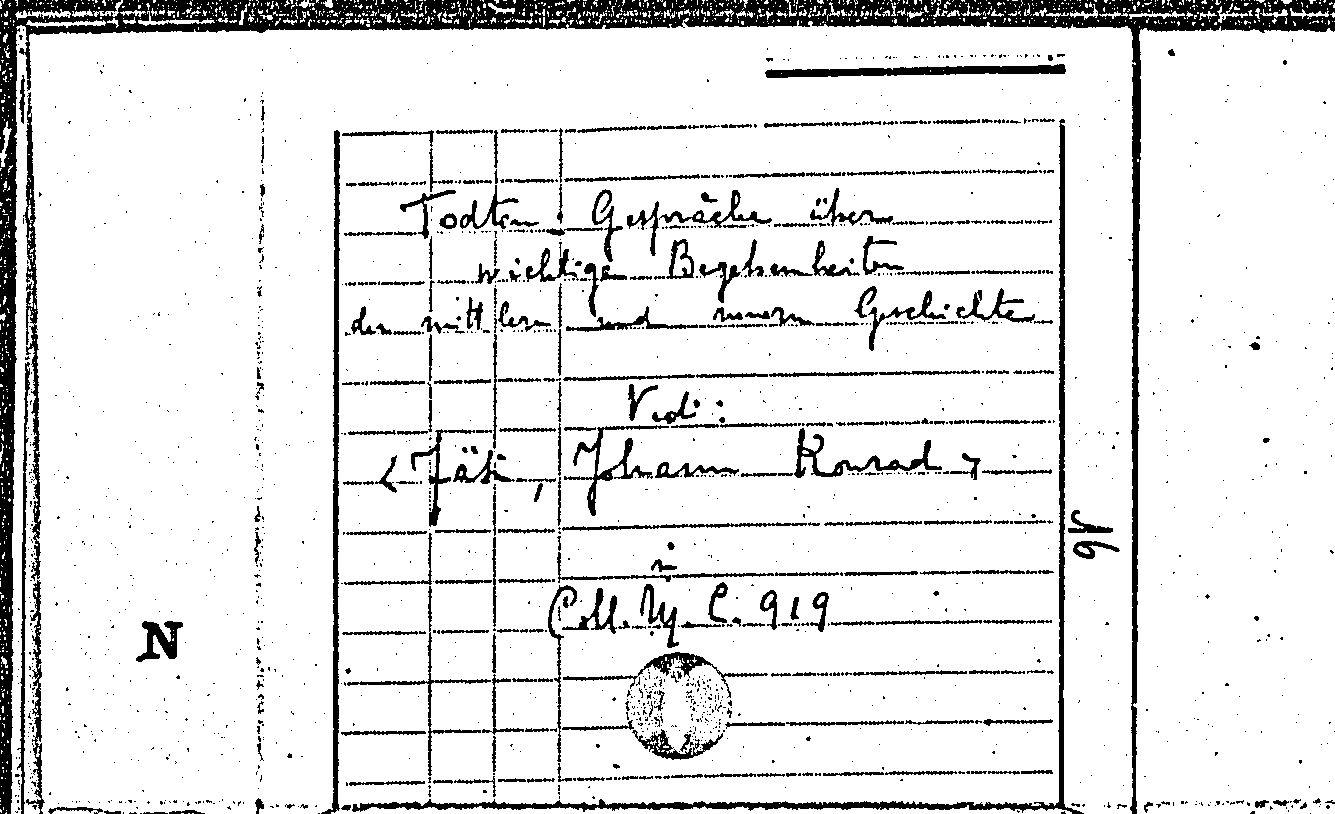 Todten-Gespräche über
wichtige Begebenheiten
der mittlern und neuern Geschichte
Vedi:
<Fäsi, Johann Konrad>
in
Coll. C. 919
N